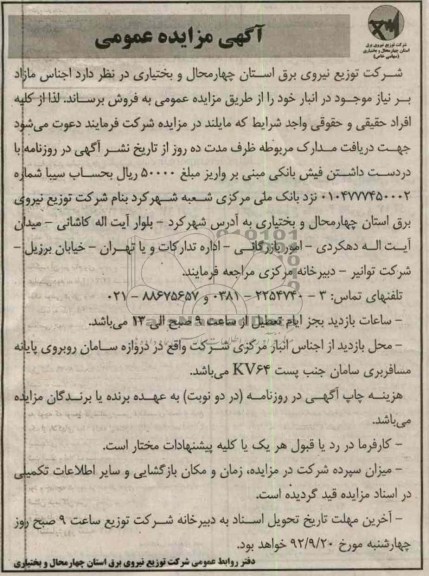 آگهی مزایده عمومی
شرکت توزیع نیروی برق
استان چهارمحال و بختیاری
(سهامی خاص)
شرکت توزیع نیروی برق استان چهارمحال و بختیاری در نظر دارد اجناس مازاد
بر نیاز موجود در انبار خود را از طریق مزایده عمومی به فروش برساند. لذا از کلیه
افراد حقیقی و حقوقی واجد شرایط که مایلند در مزایده شرکت فرمایند دعوت می‌شود
جهت دریافت مدارک مربوطه ظرف مدت ده روز از تاریخ نشر آگهی در روزنامه با
دردست داشتن فیش بانکی مبنی بر واریز مبلغ ۵۰۰۰۰ ریال بحساب سیبا شماره
۰۱۰۴۷۷۷۴۵۰۰۰۲ نزد بانک ملی مرکزی شعبه شهرکرد بنام شرکت توزیع نیروی
برق استان چهارمحال و بختیاری به آدرس شهرکرد – بلوار آیت اله کاشانی – میدان
آیت الـه دهکردی – امور بازرگانی – اداره تدارکات و یا تهران – خیابان برزیل –
شرکت توانیر – دبیرخانه مرکزی مراجعه فرمایند.
تلفنهای تماس: ۳ – ۲۲۵۴۷۴۰ – ۰۳۸۱ و ۸۸۶۷۵۶۵۷ – ۰۲۱
– ساعات بازدید بجز ایام تعطیل از ساعت ۹ صبح الی ۱۳ می‌باشد.
– محل بازدید از اجناس انبار مرکزی شرکت واقع در دروازه سامان روبروی پایانه
مسافربری سامان جنب پست KV۶۴ می‌باشد.
هزینه چاپ آگهی در روزنامه (در دو نوبت) به عهده برنده یا برندگان مزایده
می‌باشد.
– کارفرما در رد یا قبول هر یک یا کلیه پیشنهادات مختار است.
– میزان سپرده شرکت در مزایده، زمان و مکان بازگشایی و سایر اطلاعات تکمیلی
در اسناد مزایده قید گردیده است.
– آخرین مهلت تاریخ تحویل اسناد به دبیرخانه شرکت توزیع ساعت ۹ صبح روز
چهارشنبه مورخ ۹۲/۹/۲۰ خواهد بود.
دفتر روابط عمومی شرکت توزیع نیروی برق استان چهارمحال و بختیاری